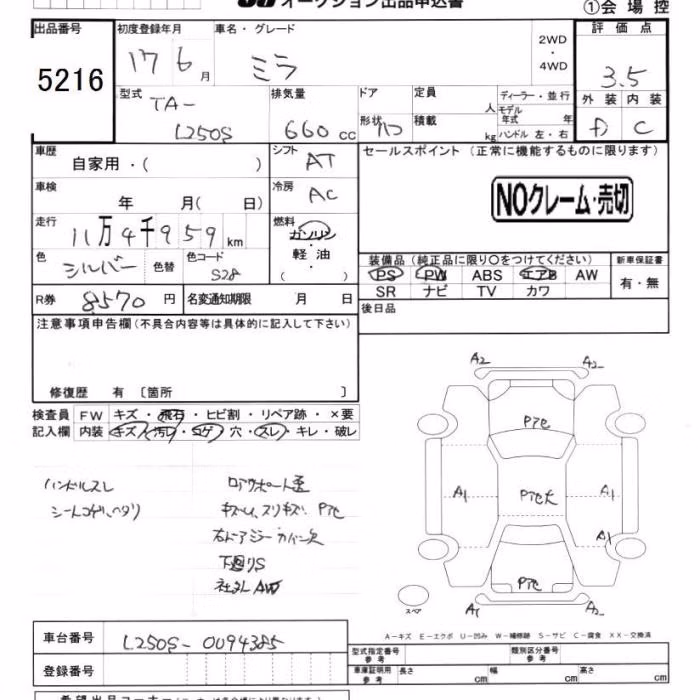 オークション出品申込書 ①会場控
出品番号 初度登録年月 車名・グレード 2WD ・ 4WD 評価点
5216 17 6月 ミラ 3.5
型式 排気量 ドア 定員 人 ディーラー・並行 外装 内装
TA- L250S 660cc 形状 積載 kg モデル年式 年 ハンドル 左・右 D C
車歴 自家用・( ) シフト AT セールスポイント (正常に機能するものに限ります)
車検 年 月( 日) 冷房 AC NOクレーム・売切
走行 11万4千959km 燃料 ガソリン 軽油 ( )
色 シルバー 色替 色コード S28
装備品 (純正品に限り○をつけてください) 新車保証書
PS PW ABS エアB AW 有・無
SR ナビ TV カワ
R券 8570円 名変通知期限 月 日 後日品
注意事項申告欄(不具合内容等は具体的に記入して下さい)
修復歴 有 〔箇所 〕
検査員 FW キズ・飛石・ヒビ割・リペア跡・×要
記入欄 内装 キズ・汚レ・コゲ・穴・スレ・キレ・破レ
A2 A2
Pアセ
ハンドルスレ
シートコゲ、ヘタリ
キズ凹、スリキズ、Pアセ
下廻りS
社外AW
A1 Pアセ大 A1
A1
Pアセ
スペア A1 A2
A-キズ E-エクボ U-凹み W-補修跡 S-サビ C-腐食 XX-交換済
車台番号 L250S-0094385
型式指定番号 参考 類別区分番号 参考
登録番号 車庫証明用 参考 長さ cm 幅 cm 高さ cm
希望出品コーナー